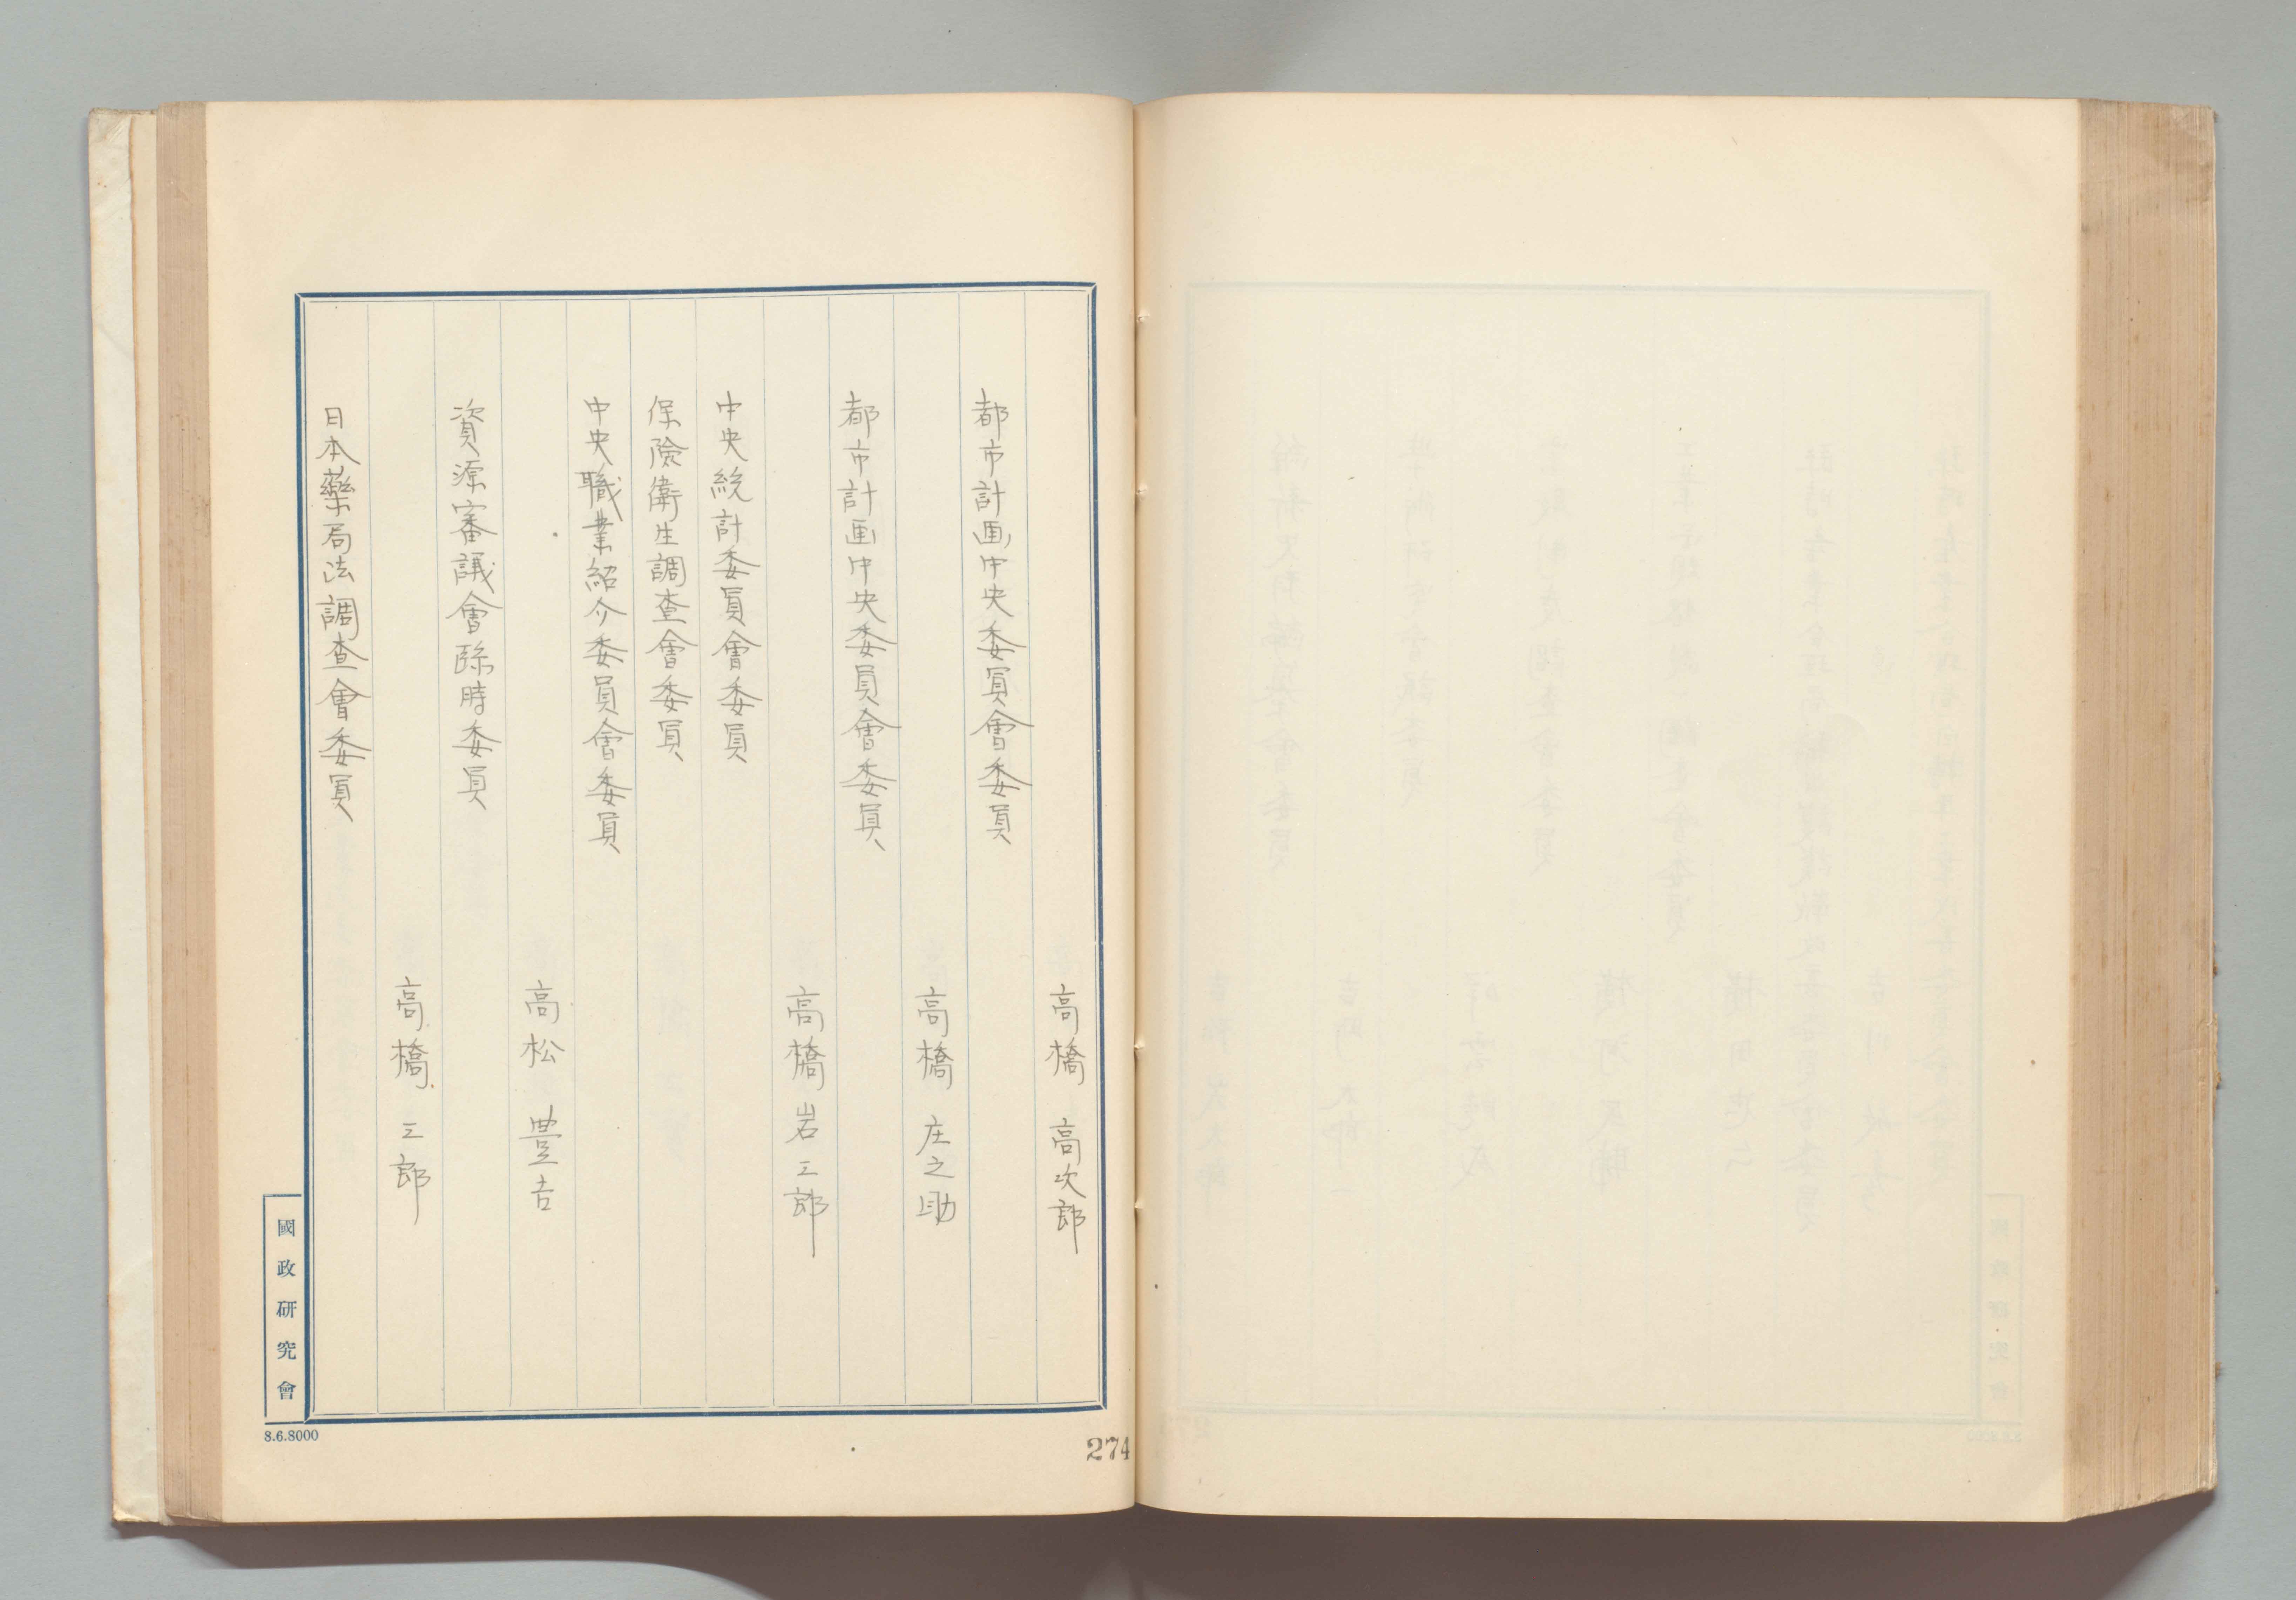 高橋 高次郎
都市計画中央委員會委員
高橋 庄之助
都市計画中央委員會委員
高橋 岩三郎
中央統計委員會委員
保險衛生調査會委員
中央職業紹介委員會委員
高松 豊吉
資源審議會臨時委員
高橋 三郎
日本藥局法調査會委員
國政研究會
8.6.8000
274